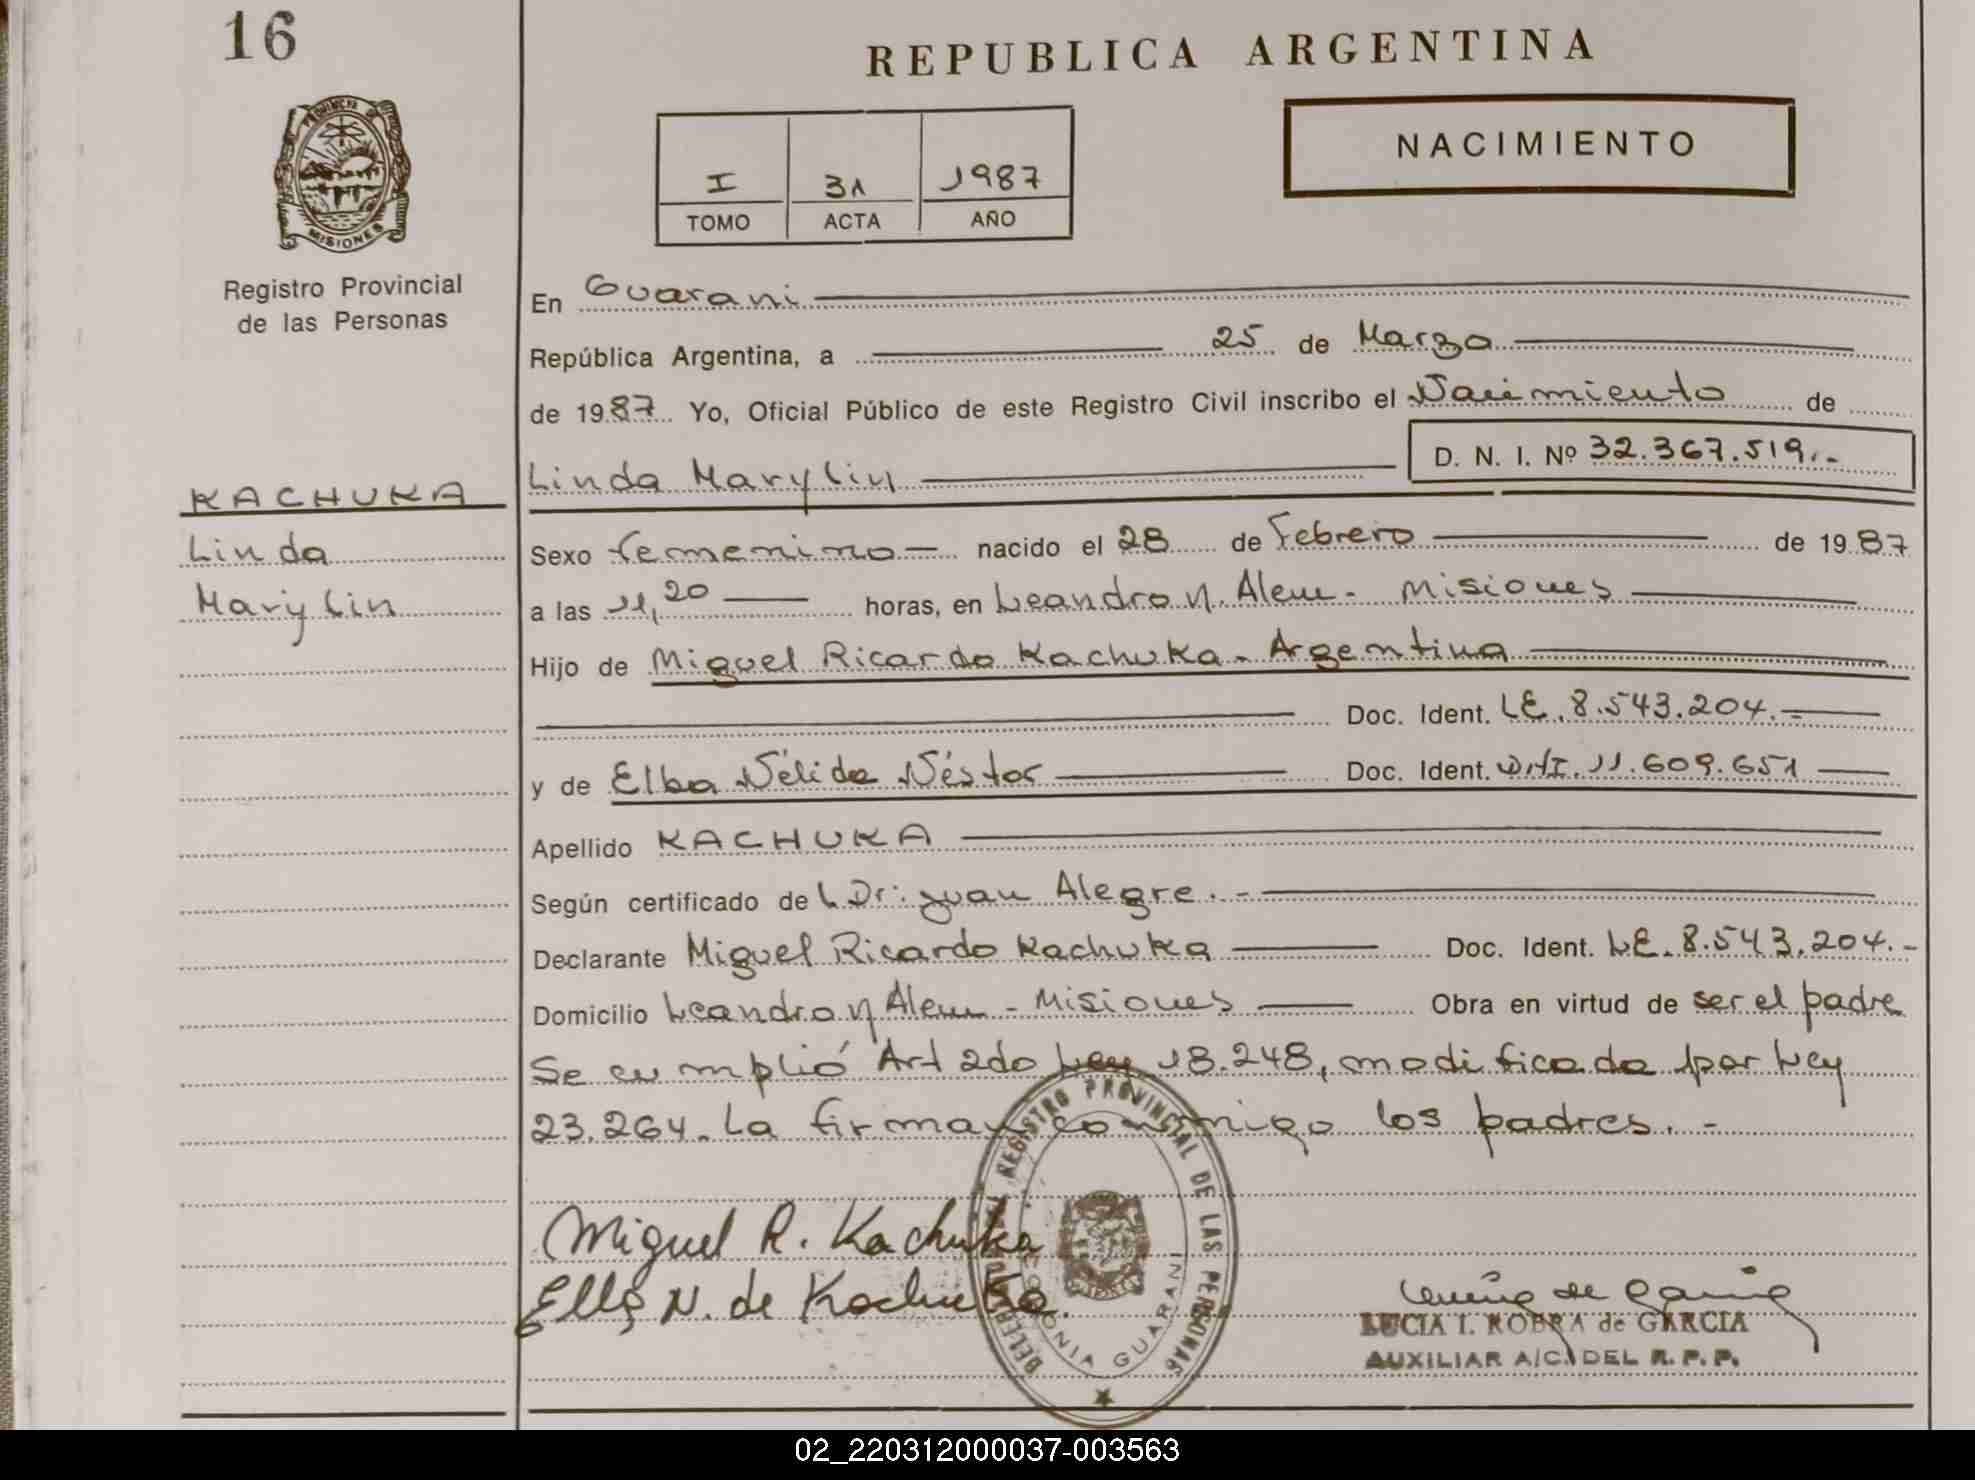 16
REPUBLICA ARGENTINA
PROVINCIA DE
MISIONES
NACIMIENTO
I 31 1987
TOMO ACTA AÑO
Registro Provincial
de las Personas
En Guarani
República Argentina, a 25 de Marzo
de 1987 Yo, Oficial Público de este Registro Civil inscribo el Nacimiento de
Linda Marylin D. N. I. Nº 32.367.519.-
KACHUKA
Linda
Marylin
Sexo femenino nacido el 28 de Febrero de 1987
a las 11,20 horas, en Leandro N. Alem - Misiones
Hijo de Miguel Ricardo Kachuka - Argentina
Doc. Ident. LE. 8.543.204.-
y de Elba Nélida Néstor Doc. Ident. DNI. 11.609.651
Apellido KACHUKA
Según certificado de L Dr: Juan Alegre. -
Declarante Miguel Ricardo Kachuka Doc. Ident. LE. 8.543.204.-
Domicilio Leandro N Alem - Misiones Obra en virtud de ser el padre
Se cumplió Art 2do Ley 18.248, modificada por Ley
23.264. La firman conmigo los padres. -
Miguel R. Kachuka
N. de Kachuka.
REGISTRO PROVINCIAL DE LAS PERSONAS
COLONIA GUARANI
LUCIA I. ROBRA de GARCIA
AUXILIAR A/C. DEL R. P. P.
02_220312000037-003563